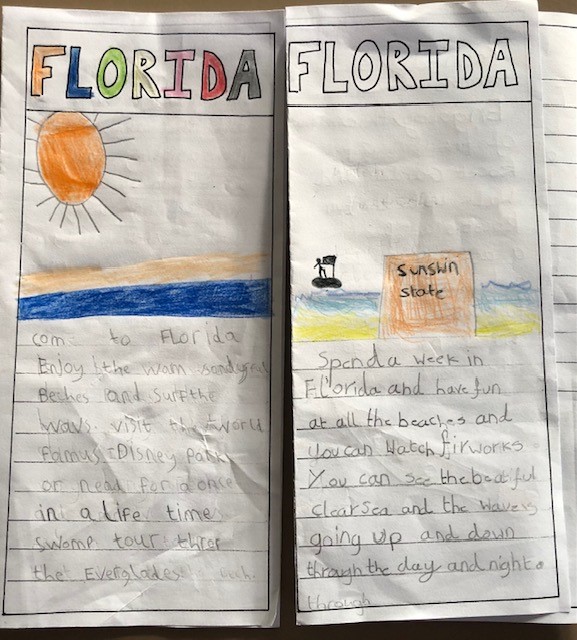 FLORIDA
com to Florida
Enjoy the warm sandy
Beches and surf the
wavs visit the world
famus Disney Park
or nead for a once
in a life time
swomp tour threr
the Everglades
FLORIDA
Sunshin
state
Spend a week in
Florida and have fun
at all the beaches and
you can watch firworks
You can see the beatiful
clear sea and the waves
going up and down
through the day and night.
through